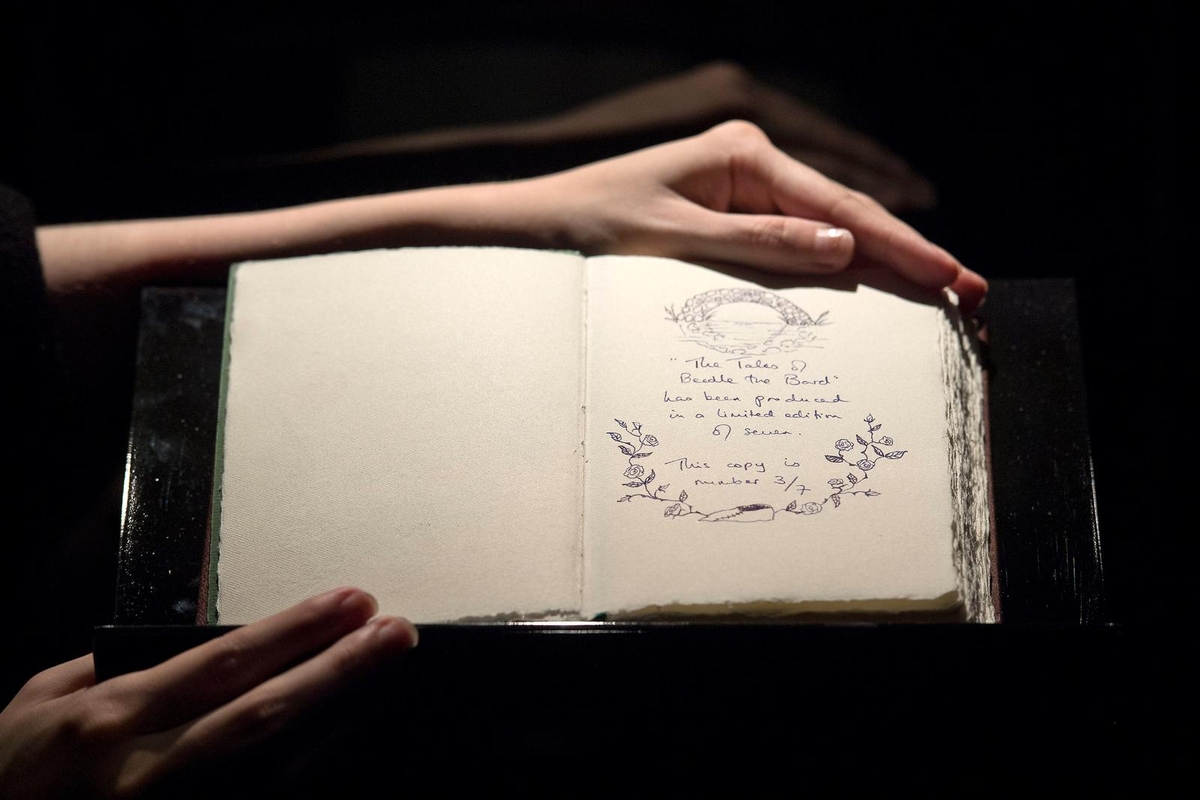 "The Tales of
Beedle the Bard"
has been produced
in a limited edition
of seven.
This copy is
number 3/7